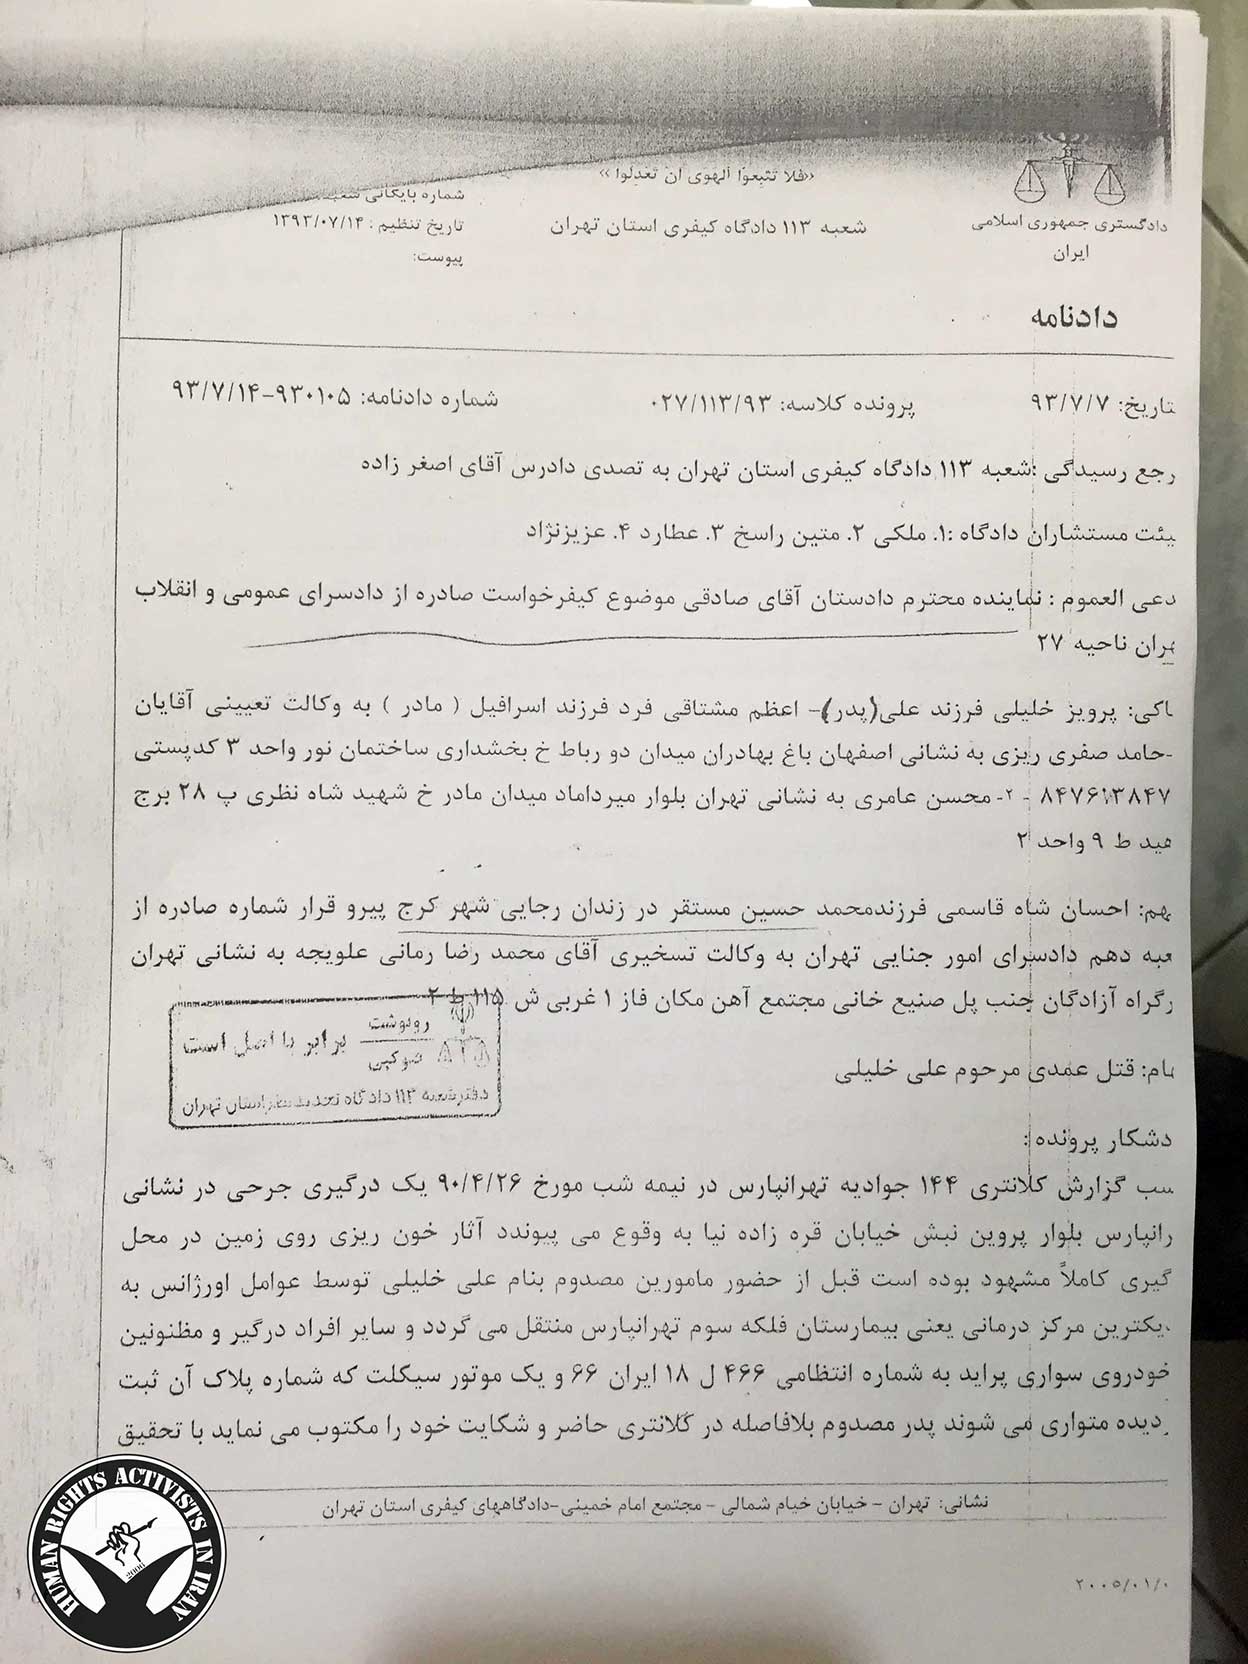 «فلا تتبعوا الهوی ان تعدلوا»
شماره بایگانی
دادگستری جمهوری اسلامی
ایران
شعبه ۱۱۳ دادگاه کیفری استان تهران
تاریخ تنظیم : ۱۳۹۳/۰۷/۱۴
پیوست:
دادنامه
تاریخ: ۹۳/۷/۷ پرونده کلاسه: ۰۲۷/۱۱۳/۹۳ شماره دادنامه: ۹۳۰۱۰۵-۹۳/۷/۱۴
رجع رسیدگی :شعبه ۱۱۳ دادگاه کیفری استان تهران به تصدی دادرس آقای اصغر زاده
یئت مستشاران دادگاه :۱. ملکی ۲. متین راسخ ۳. عطارد ۴. عزیزنژاد
دعی العموم : نماینده محترم دادستان آقای صادقی موضوع کیفرخواست صادره از دادسرای عمومی و انقلاب
هران ناحیه ۲۷
اکی: پرویز خلیلی فرزند علی(پدر)- اعظم مشتاقی فرد فرزند اسرافیل ( مادر ) به وکالت تعیینی آقایان
-حامد صفری ریزی به نشانی اصفهان باغ بهادران میدان دو رباط خ بخشداری ساختمان نور واحد ۳ کدپستی
۸۴۷۶۱۳۸۴۷ - ۲- محسن عامری به نشانی تهران بلوار میرداماد میدان مادر خ شهید شاه نظری پ ۲۸ برج
هید ط ۹ واحد ۲
هم: احسان شاه قاسمی فرزندمحمد حسین مستقر در زندان رجایی شهر کرج پیرو قرار شماره صادره از
عبه دهم دادسرای امور جنایی تهران به وکالت تسخیری آقای محمد رضا رمانی علویجه به نشانی تهران
رگراه آزادگان جنب پل صنیع خانی مجتمع آهن مکان فاز ۱ غربی ش ۱۱۵ ط ۲
رونوشت
فوکپی
برابر با اصل است
دفترشعبه ۱۱۳ دادگاه تجدیدنظراستان تهران
هام: قتل عمدی مرحوم علی خلیلی
دشکار پرونده :
سب گزارش کلانتری ۱۴۴ جوادیه تهرانپارس در نیمه شب مورخ ۹۰/۴/۲۶ یک درگیری جرحی در نشانی
رانپارس بلوار پروین نبش خیابان قره زاده نیا به وقوع می پیوندد آثار خون ریزی روی زمین در محل
گیری کاملاً مشهود بوده است قبل از حضور مامورین مصدوم بنام علی خلیلی توسط عوامل اورژانس به
دیکترین مرکز درمانی یعنی بیمارستان فلکه سوم تهرانپارس منتقل می گردد و سایر افراد درگیر و مظنونین
خودروی سواری پراید به شماره انتظامی ۴۶۶ ل ۱۸ ایران ۶۶ و یک موتور سیکلت که شماره پلاک آن ثبت
دیده متواری می شوند پدر مصدوم بلافاصله در کلانتری حاضر و شکایت خود را مکتوب می نماید با تحقیق
نشانی: تهران - خیابان خیام شمالی - مجتمع امام خمینی-دادگاههای کیفری استان تهران
۲۰۰۵/۰۱/۰
HUMAN RIGHTS ACTIVISTS IN IRAN
2006